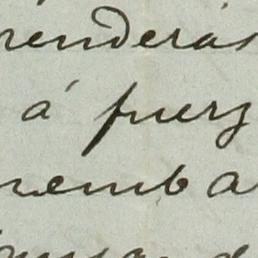 renderás
á fuerz
remba